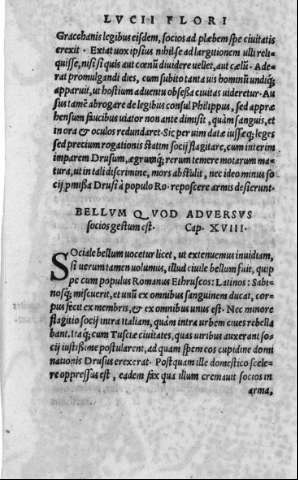 LVCII FLORI
Gracchanis legibus eisdem, socios ad plæbem spe ciuitatis
erexit. Extat uox ipsius nihil se ad largitionem ulli reli⸗
quisse, nisi si quis aut cœnū diuidere uellet, aut cælū. Ade⸗
rat promulgandi dies, cum subito tanta uis hominū undiq;
apparuit, ut hostium aduentu obsessa ciuitas uideretur. Au
sus tamē abrogare de legibus consul Philippus, sed appræ
hensum faucibus uiator non ante dimisit, quàm sanguis, et
in ora & oculos redundaret. Sic per uim datæ iussæq; leges
sed precium rogationis statim socij flagitare, cum interim
imparem Drusum, ægrumq; rerum temere motarum ma⸗
tura, ut in tali discrimine, mors abstulit, nec ideo minus so
cij pmissa Drusi à populo Ro. reposcere armis desierunt.
BELLVM QVOD ADVERSVS
socios gestum est. Cap. XVIII.
SOciale bellum uocetur licet, ut extenuemus inuidiam,
si uerum tamen uolumus, illud ciuile bellum fuit, quip
pe cum populus Romanus Ethruscos: Latinos: Sabi⸗
nosq; miscuerit, et unū ex omnibus sanguinem ducat, cor⸗
pus fecit ex membris, & ex omnibus unus est. Nec minore
flagitio socij intra Italiam, quàm intra urbem ciues rebella
bant. Itaq; cum Tusciæ ciuitates, quas uiribus auxerant so⸗
cij iustiss.me postularent, ad quam spem eos cupidine domi
nationis Drusus erexerat. Postquam ille domestico scele⸗
re oppressus est, eadem fax quæ illum cremauit socios in
arma,